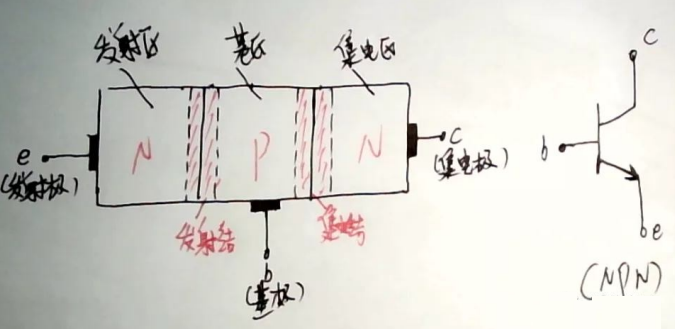 发射区
基区
集电区
c
N
P
N
e
(发射极)
c
(集电极)
b
发射结
集电结
b
(基极)
e
(NPN)